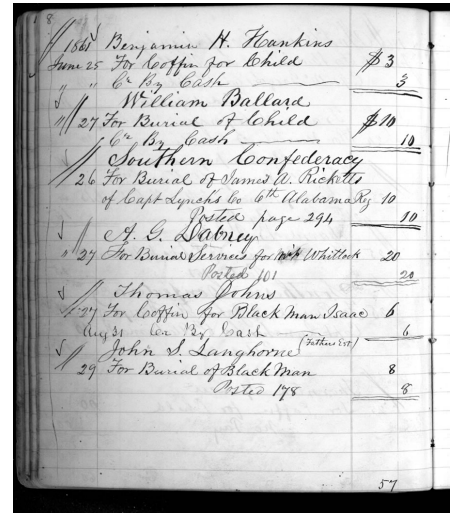 8
1861 Benjamin H. Hankins
June 25 For Coffin for Child $3
" " Cr By Cash 3
William Ballard
" 27 For Burial of Child $10
Cr By Cash 10
Southern Confederacy
26 For Burial of James A. Ricketts
of Capt Lynch's Co 6th Alabama Reg 10
Posted page 294 10
A. G. Dabney
" 27 For Burial Services for Whitlock 20
Posted 101 20
Thomas Johns
" 27 For Coffin for Black Man Isaac 6
Aug 31 Cr By Cash 6
John S. Langhorne (Fathers Est.)
" 29 For Burial of Black Man 8
Posted 178 8
57